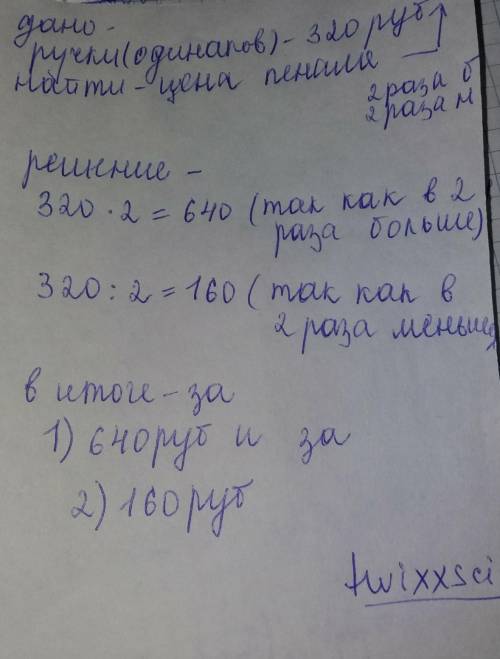 дано -
ручки (одинаков) - 320 руб
найти - цена пенала
2 раза б
2 раза м
решение -
320 · 2 = 640 (так как в 2
раза больше)
320 : 2 = 160 (так как в
2 раза меньше)
в итоге - за
1) 640 руб и за
2) 160 руб
twixxsci